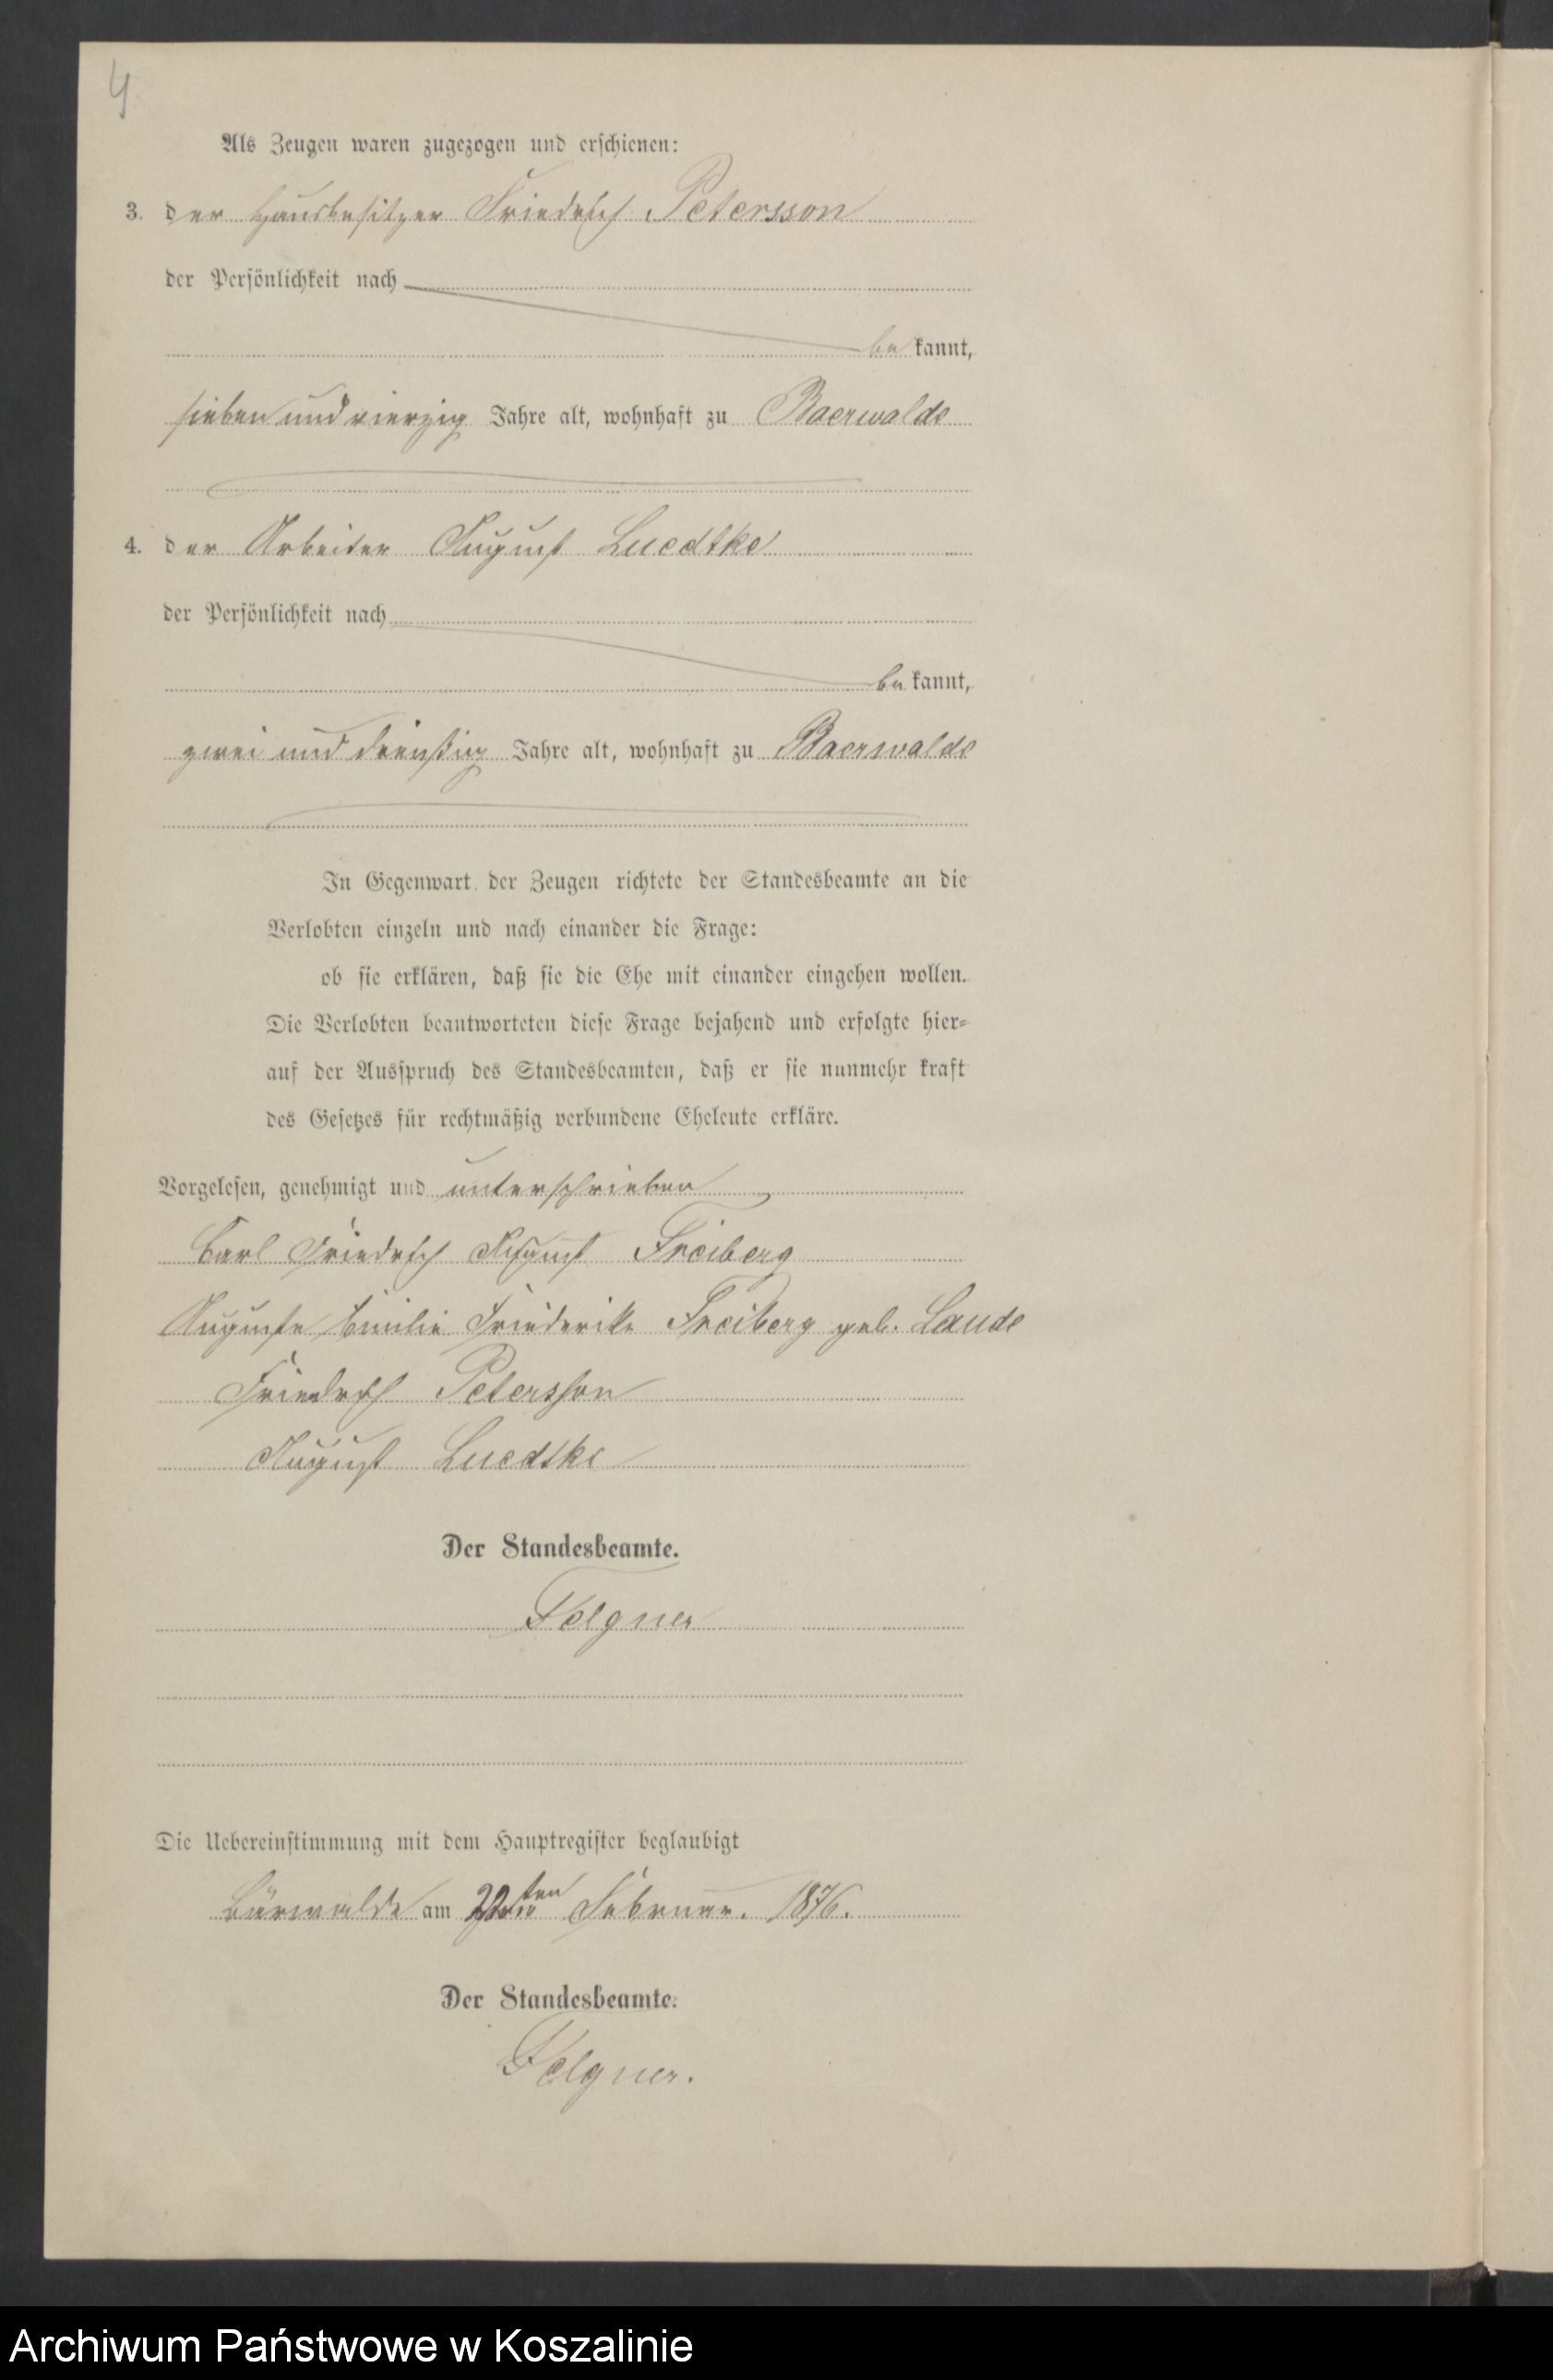 4
Als Zeugen waren zugezogen und erschienen:
3. der Hausbesitzer Friedrich Petersson
der Persönlichkeit nach
be kannt,
sieben und vierzig Jahre alt, wohnhaft zu Baerwalde
4. der Arbeiter August Luedtke
der Persönlichkeit nach
be kannt,
zwei und dreißig Jahre alt, wohnhaft zu Baerwalde
In Gegenwart der Zeugen richtete der Standesbeamte an die
Verlobten einzeln und nach einander die Frage:
ob sie erklären, daß sie die Ehe mit einander eingehen wollen.
Die Verlobten beantworteten diese Frage bejahend und erfolgte hier-
auf der Ausspruch des Standesbeamten, daß er sie nunmehr kraft
des Gesetzes für rechtmäßig verbundene Eheleute erkläre.
Vorgelesen, genehmigt und unterschrieben
Carl Friedrich August Freiberg
Auguste Emilie Friederike Freiberg geb. Laude
Friedrich Petersson
August Luedtke
Der Standesbeamte.
Felgner
Die Uebereinstimmung mit dem Hauptregister beglaubigt
Bärwalde am 22ten Februar. 1876.
Der Standesbeamte.
Felgner.
Archiwum Państwowe w Koszalinie